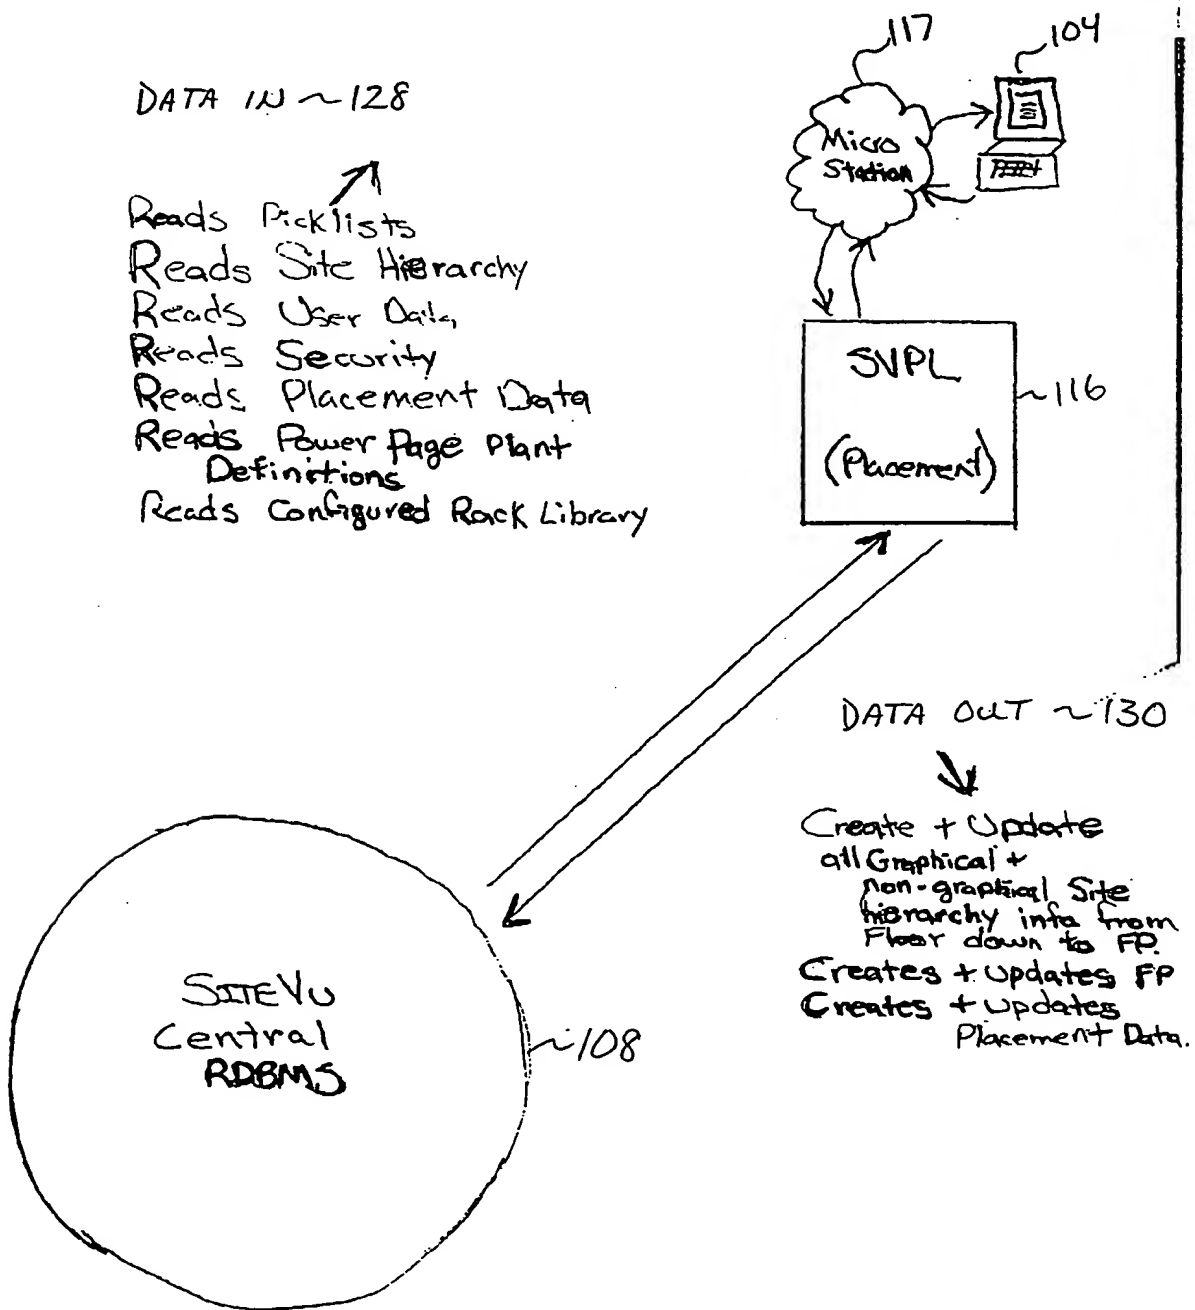 117
104
DATA IN ~128
Micro
Station
Reads Picklists
Reads Site Hierarchy
Reads User Data
Reads Security
Reads Placement Data
Reads Power Page Plant
Definitions
Reads Configured Rack Library
SVPL
(Placement)
~116
DATA OUT ~130
Create + Update
all Graphical +
non-graphical Site
hierarchy info from
Floor down to FP.
Creates + updates FP
Creates + updates
Placement Data.
SITEVU
Central
RDBMS
~108